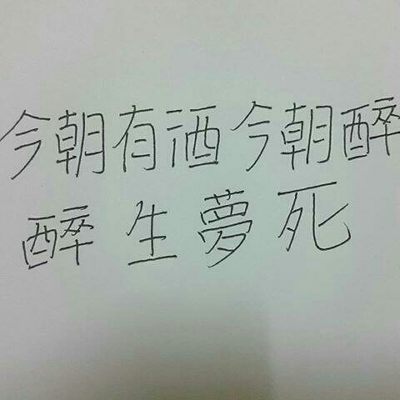 今朝有酒今朝醉
醉生夢死